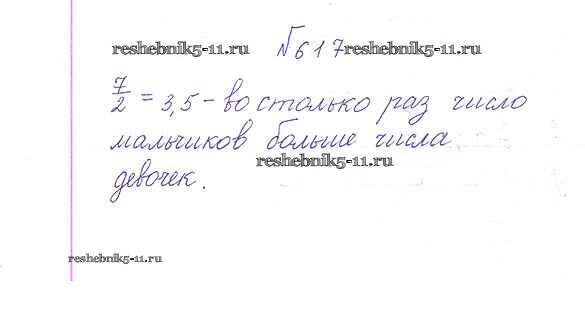 reshebnik5-11.ru №617 reshebnik5-11.ru
7/2 = 3,5 - во столько раз число
мальчиков больше числа
reshebnik5-11.ru
девочек.
reshebnik5-11.ru